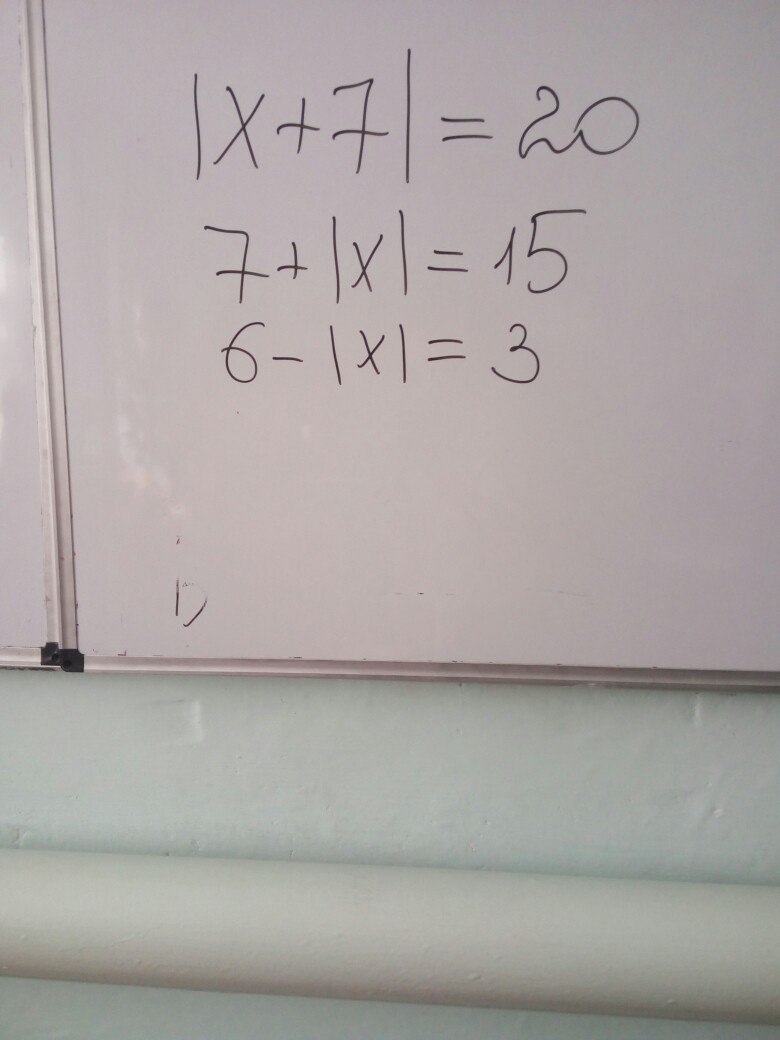 |x+7|=20
7+|x|=15
6-|x|=3